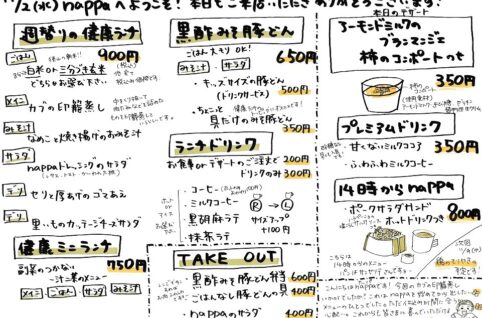 11/2(水)nappaへようこそ!本日もご来店いただきありがとうございます!
週替りの健康ランチ
900円
ごはん
白米or三分づき玄米
どちらかお選び下さい
メイン
カブの印籠蒸し
みそ汁
なめこと焼き揚げのおみそ汁
サラダ
nappaドレッシングのサラダ
デリ
セリと厚あげのゴマあえ
デリ
里いものカッテージチーズサラダ
健康ミニランチ
750円
副菜のつかない
一汁一菜のメニュー
メイン ごはん サラダ みそ汁
黒酢みそ豚どん
ごはん大もりOK!
みそ汁 サラダ
650円
・キッズサイズの豚どん
(ドリンクサービス)
500円
・ちょこっと
具だけのみそ豚どん
350円
ランチドリンク
お食事orデザートのご注文で 200円
ドリンクのみ 300円
ホット
or
アイス
・コーヒー
・ミルクコーヒー
・黒胡麻ラテ
・抹茶ラテ
R → L
サイズアップ
+100円
TAKE OUT
・黒酢みそ豚どん弁当 600円
・ごはんなし豚どんの具 400円
・nappaのサラダ
本日のデザート
アーモンドミルクの
ブランマンジェ
柿のコンポートのせ
350円
プレミアムドリンク
・甘くないミルクココア
・ふわふわミルクコーヒー
350円
14時からnappa
・ポークサラダサンド
ホットドリンクつき
800円
こちらは
14時からの